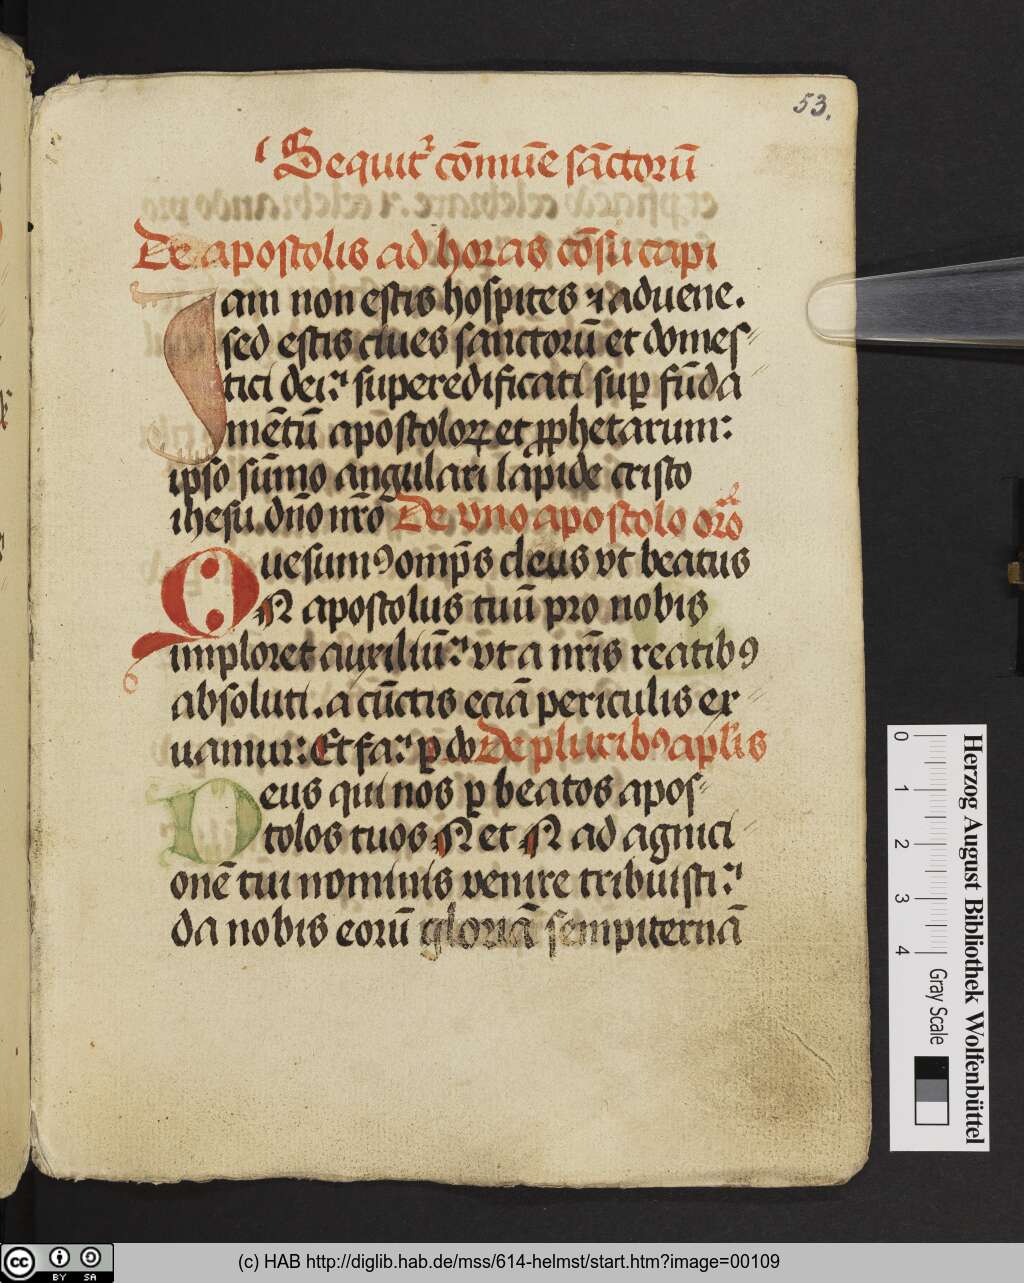 53.
Sequit᷑ cōmūe sāctorū
De apostolis ad horas cōsu capi
Iam non estis hospites ⁊ aduene.
sed estis ciues sanctorū et domes⸗
tici dei: superedificati suꝑ fūda
mētū apostoloꝝ et ꝓphetarum:
ipso sūmo angulari lapide cristo
ihesu dn̄o nr̄o De vno apostolo oro
Quesumꝰ omp̄s deus vt beatus
N apostolus tuū pro nobis
imploret auxiliū: vt a nr̄is reatibꝰ
absoluti. a cūctis eciā periculis ex⸗
uamur: Et fa: ꝑ do De pluribꝰ apl̄is
Deus qui nos ꝑ beatos apos⸗
tolos tuos N et N ad agnici
onē tui nominis venire tribuisti:
da nobis eorū gloriā sempiternā
0 1 2 3 4
Herzog August Bibliothek Wolfenbüttel
Gray Scale
cc BY SA
(c) HAB http://diglib.hab.de/mss/614-helmst/start.htm?image=00109